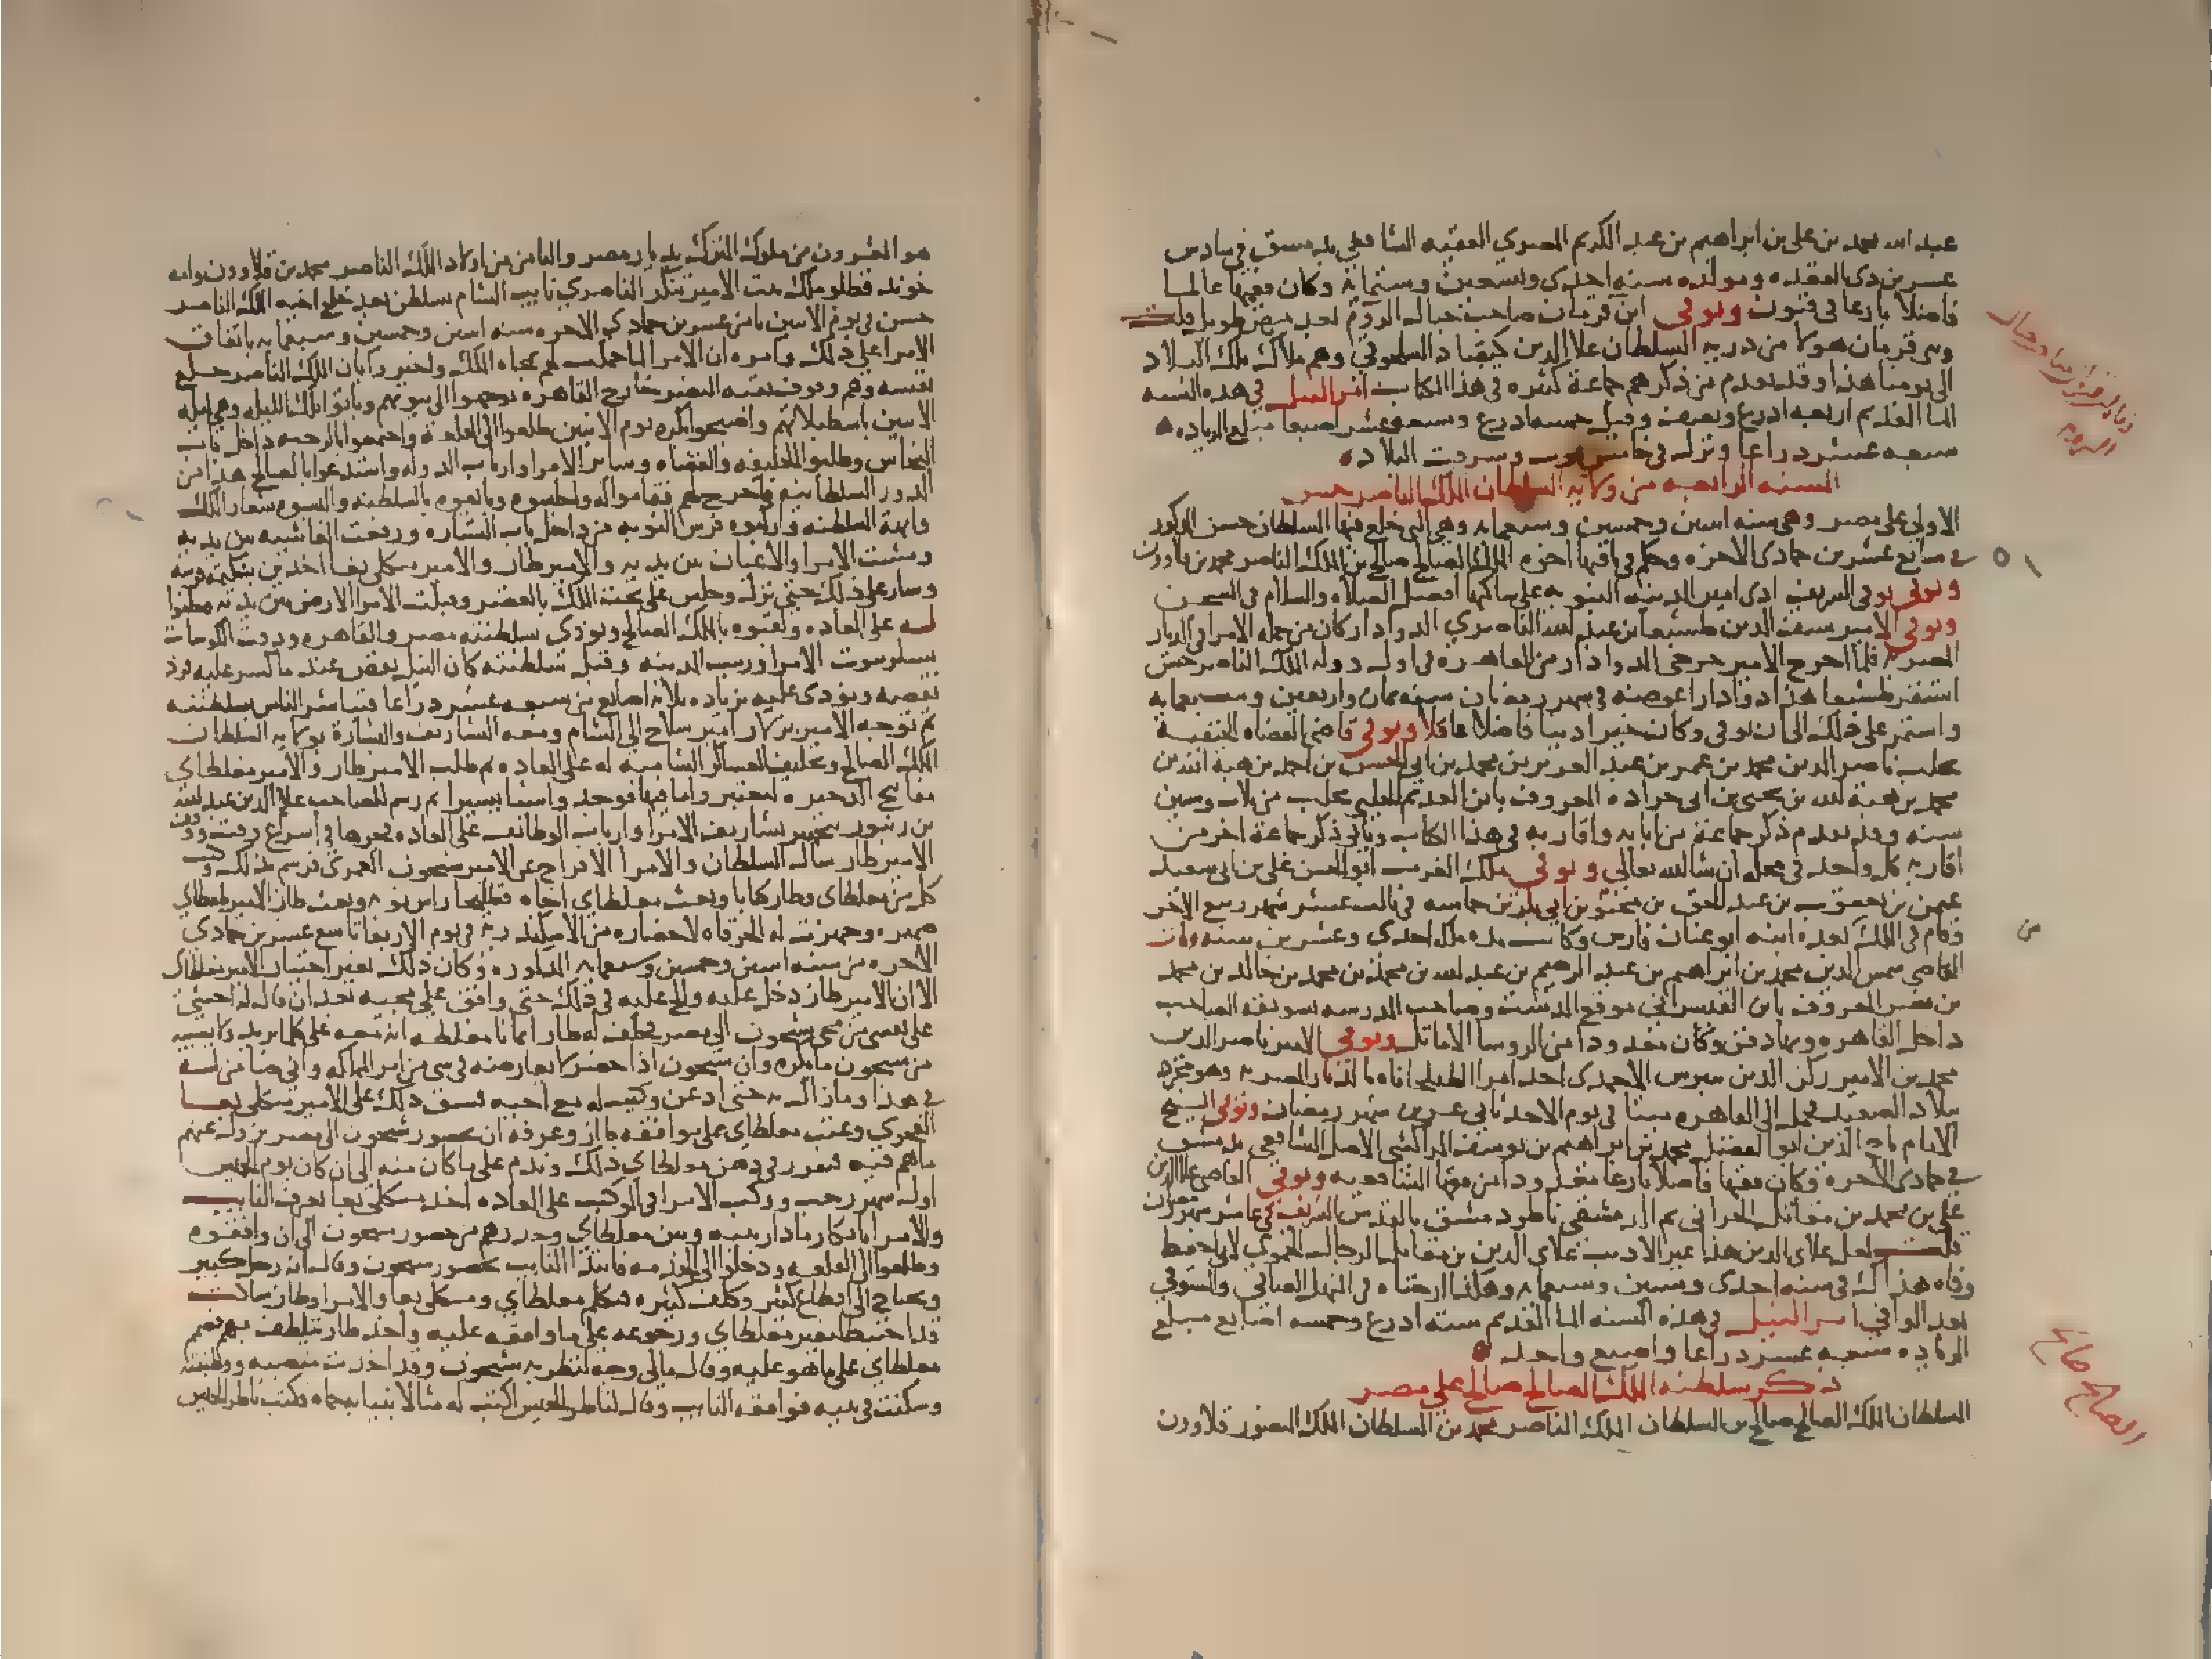 عبد الله محمد بن على بن ابراهيم بن عبد الكريم المصري الفقيه الشافعي بدمشق في سادس
عشرين ذى القعده ومولده سنه احدى وتسعين وستمايه وكان فقيها عالما
فاضلا بارعا في فنون وتوفى ابن قرمان صاحب جبال الروم بعد مرض طويل قلت
وبنو قرمان هولا من ذريه السلطان علا الدين كيقباد السلجوقي وهم ملاك تلك البلاد
الى يومنا هذا وقد تقدم من ذكرهم جماعة كثيره في هذا الكتاب امر النيل في هذه السنه
الما القديم اربعه ادرع ونصف وقيل خمسه ادرع وسبعه عشر اصبعا مبلغ الزياده
سبعه عشر دراعا ونزل في خامس توت وشرقت البلاد
السنه الرابعه من ولايه السلطان الملك الناصر حسن
الاولى على مصر وهى سنه اثنين وخمسين وسبعمايه وهى التى خلع فيها السلطان حسن المذكور
في سابع عشرين جمادى الاخره وحكم في باقيها اخوه الملك الصالح صالح بن الملك الناصر محمد بن قلاوون
وتوفى توفى الشريف ادى امير المدينه النبويه على ساكنها افضل الصلاه والسلام في السجن
وتوفى الامير سيف الدين طشبغا بن عبد الله الناصري الدوادار كان من جمله الامرا في الديار
المصريه فلما اخرج الامير جرجى الدوادار من القاهره في اول دوله الملك الناصر حسن
استقر طشبغا هذا دوادارا عوضه في شهر رمضان سنه ثمان واربعين وسبعمايه
واستمر على ذلك الى ان توفى وكان خيرا دينا فاضلا عاقلا وتوفى قاضى القضاه الحنفية
بحلب ناصر الدين محمد بن عمر بن عبد العزيز بن محمد بن ابى الحسن بن احمد بن هبة الله بن
محمد بن هبة الله بن يحيى بن ابى جراده المعروف بابن العديم الحلبى بحلب عن ثلاث وستين
سنه وقد تقدم ذكر جماعة من ابايه واقاربه في هذا الكتاب وياتى ذكر جماعة اخر من
اقاربه كل واحد في محله ان شا الله تعالى وتوفى ملك الغرب ابو الحسن على بن ابى سعيد
عثمن بن يعقوب بن عبد الحق بن محيو بن ابى بكر بن حمامه في ثالث عشر شهر ربيع الاخر
وقام في الملك بعده ابنه ابو عنان فارس وكانت مده ملكه احدى وعشرين سنه ومات
القاضى شمس الدين محمد بن ابراهيم بن عبد الرحيم بن عبد الله بن محمد بن محمد بن خالد بن محمد
بن نصر المعروف بابن القيسرانى موقع الدست وصاحب المدرسه بسويقه الصاحب
داخل القاهره وبها دفن وكان معدودا من الروسا الاماثل وتوفى الامير ناصر الدين
محمد بن الامير ركن الدين بيبرس الاحمدى احد امرا الطبلخاناه بالديار المصريه وهو مجرد
ببلاد الصعيد فحمل الى القاهره ميتا في يوم الاحد ثانى عشرين شهر رمضان وتوفى الشيخ
الامام تاج الدين ابو الفضل محمد بن ابراهيم بن يوسف المراكشى الاصل الشافعى بدمشق
في جمادى الاخره وكان فقيها فاضلا بارعا معدودا من فقها الشافعيه وتوفى القاضى علا الدين
على بن محمد بن مقاتل الحرانى ثم الدمشقى ناظر دمشق بالقدس الشريف في عاشر شهر رمضان
قلت لعل علاى الدين هذا غير الاديب علاى الدين بن مقاتل الزجال الحموي لانى احفظ
وفاه هذاك في سنه احدى وستين وسبعمايه وهكذا ارخناه في المنهل الصافى والمستوفى
بعد الوافى امر النيل في هذه السنه الما القديم سته ادرع وخمسه اصابع مبلغ
الزياده سبعه عشر دراعا واصبع واحد
ذكر سلطنه الملك الصالح صالح على مصر
السلطان الملك الصالح صالح بن السلطان الملك الناصر محمد بن السلطان الملك المنصور قلاوون
الصالح صالح
هو العشرون من ملوك الترك بديار مصر والثامن من اولاد الملك الناصر محمد بن قلاوون وامه
خوند قطلوملك بنت الامير تنكز الناصري نايب الشام تسلطن بعد خلع اخيه الملك الناصر
حسن في يوم الاثنين ثامن عشرين جمادى الاخره سنه اثنين وخمسين وسبعمايه باتفاق
الامرا على ذلك وامره ان الامرا لما حملت لهم نمجاه الملك واخبروا بان الملك الناصر خلع
نفسه وهم وقوف بقبه النصر خارج القاهره توجهوا الى بيوتهم وباتوا تلك الليله وهى ليله
الاثنين باسطبلاتهم واصبحوا بكره يوم الاثنين طلعوا الى القلعة واجتمعوا بالرحبه داخل باب
النحاس وطلبوا الخليفه والقضاه وساير الامرا وارباب الدوله واستدعوا بالصالح هذا من
الدور السلطانيه فاخرج لهم فقاموا له واجلسوه وبايعوه بالسلطنه والبسوه شعار الملك
وابهة السلطنه واركبوه فرس النوبه من داخل باب الستاره ورفعت الغاشيه بين يديه
ومشت الامرا والاعيان بين يديه والامير طاز والامير منكلى بغا اخذين بشكيمه فرسه
وسار على ذلك حتى نزل وجلس على تخت الملك بالقصر وقبلت الامرا الارض بين يديه وحلفوا
له على العاده ولقبوه بالملك الصالح ونودى بسلطنته بمصر والقاهره ودقت الكوسات
ساير بيوت الامرا وزينت المدينه وقبل سلطنته كان النيل نقص عند ما كسر عليه فرد
نقصه ونودى عليه بزياده ثلاثه اصابع من سبعه عشر دراعا فتباشر الناس بسلطنته
ثم توجه الامير بزلار امير سلاح الى الشام ومعه التشاريف والبشارة بولايه السلطان
الملك الصالح وتحليف العساكر الشاميه له على العاده ثم طلب الامير طاز والامير مغلطاي
مفاتيح الدخيره ليعتبروا ما فيها فوجدوا شيا يسيرا ثم رسم للصاحب علم الدين عبد الله
بن زنبور بتجهيز تشاريف الامرا وارباب الوظايف على العاده فجهزها في اسرع وقت ووقف
الامير طاز سال السلطان والامرا الافراج عن الامير شيخون العمرى فرسم بذلك وكتب
كل من مغلطاى وطاز كتابا وبعث مغلطاي اخاه قطليجا راس نوبه وبعث طاز الامير طقطاي
صهره وجهزت له الحراقه لاحضاره من الاسكندريه في يوم الاربعا تاسع عشرين جمادي
الاخره من سنه اثنين وخمسين وسبعمايه المذكوره وكان ذلك بغير اختيار الامير مغلطاى
الا ان الامير طاز دخل عليه والح عليه في ذلك حتى وافق على مجيه بعد ان قال له اخشى
على نفسى من مجى شيخون الى مصر فحلف له طاز ايمانا مغلظه انه معه على كلما يريد ولا يصيبه
من شيخون ما يكره وان شيخون اذا حضر لا يعارضه في شى من امر المملكه وانى ضامن له
في هذا وما زال به حتى اذعن وكتب له مع اخيه فشق ذلك على الامير منكلى بغا
الفخرى وعتب مغلطاي على موافقه طاز وعرفه ان بحضور شيخون الى مصر يزول عنهم
ما هم فيه فتقرر في ذهن مغلطاي ذلك وندم على ما كان منه الى ان كان يوم الخميس
اول شهر رجب وركب الامرا في الموكب على العاده اخذ منكلى بغا يعرف النايب
والامرا بانكار ما دار بينه وبين مغلطاي وحذرهم من حضور شيخون الى ان وافقوه
وطلعوا الى القلعه ودخلوا الى الخدمه فابتدا النايب بحضور شيخون وقال انه رجل كبير
ويحتاج الى اقطاع كبير وكلف كثيره فتكلم مغلطاي ومنكلى بغا والامرا وطاز ساكت
قد اختبط لتغير مغلطاي ورجوعه على ما وافقه عليه واخذ طاز يتلطف بهم فصمم
مغلطاي على ما هو عليه وقال مالى وجه انظر به شيخون وقد اخذت منصبه ووظيفته
وسكنت في بيته فوافقه النايب وقال لناظر الجيش اكتب له مثالا بنيابه حماه فكتب ناظر الجيش